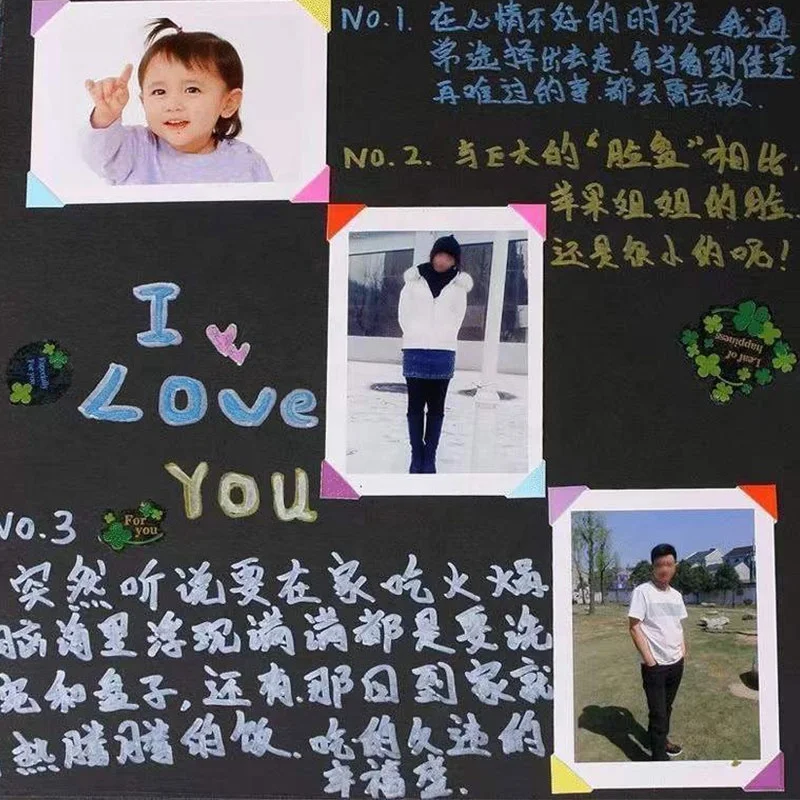 NO.1. 在心情不好的时候,我通
常选择出去走,每当看到佳宝
再难过的事.都云离云散.
NO.2. 与正大的“脸盘”相比,
苹果姐姐的脸
还是很小的呢!
Leaf of
happiness
I
Love
You
for you
NO.3
For
you
突然听说要在家吃火煱
脑海里浮现满满都是要洗
和盘子,还有.那日到家就
热腾腾的饭.吃的久违的
幸福盛.